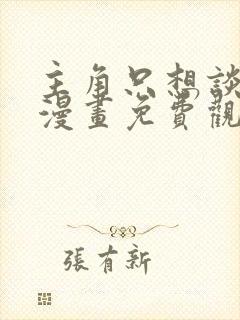 主角只想談
漫畫免費觀
張有新